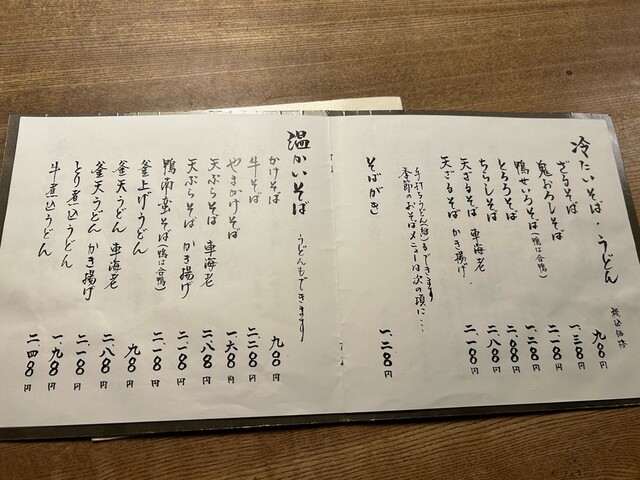 冷たいそば・うどん
税込価格
ざるそば 九〇〇円
鬼おろしそば 一.三〇〇円
鴨せいろそば(鴨は合鴨) 二.一〇〇円
とろろそば 円
ちらしそば 円
天ざるそば 車海老 二.八〇〇円
天ざるそば かき揚げ 二.一〇〇円
手打ちうどん(細)もできます
季節のおそばメニューは次の頂に・・・
そばがき 一.二〇〇円
温かいそば うどんもできます
かけそば 九〇〇円
牛そば 二.二〇〇円
やまかけそば 一.六〇〇円
天ぷらそば 車海老 二.八〇〇円
天ぷらそば かき揚げ 二.一〇〇円
鴨南蛮そば(鴨は合鴨) 二.一〇〇円
釜上げうどん 九〇〇円
釜天うどん 車海老 二.八〇〇円
釜天うどん かき揚げ 二.一〇〇円
とり煮込うどん 一.九〇〇円
牛煮込うどん 二.四〇〇円